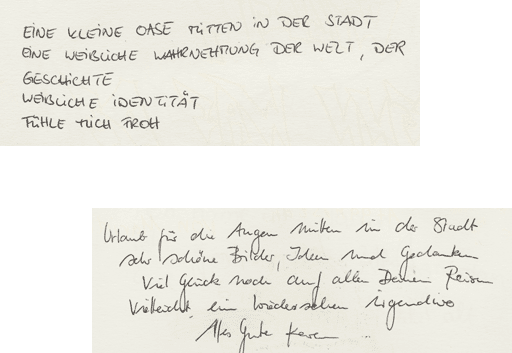 EINE KLEINE OASE MITTEN IN DER STADT
EINE WEIBLICHE WAHRNEHMUNG DER WELT, DER
GESCHICHTE
WEIBLICHE IDENTITÄT
FÜHLE MICH FROH
Urlaub für die Augen mitten in der Stadt
sehr schöne Bilder, Ideen und Gedanken
Viel Glück noch auf allen Deinen Reisen
Vielleicht ein Wiedersehen irgendwo
Alles Gute